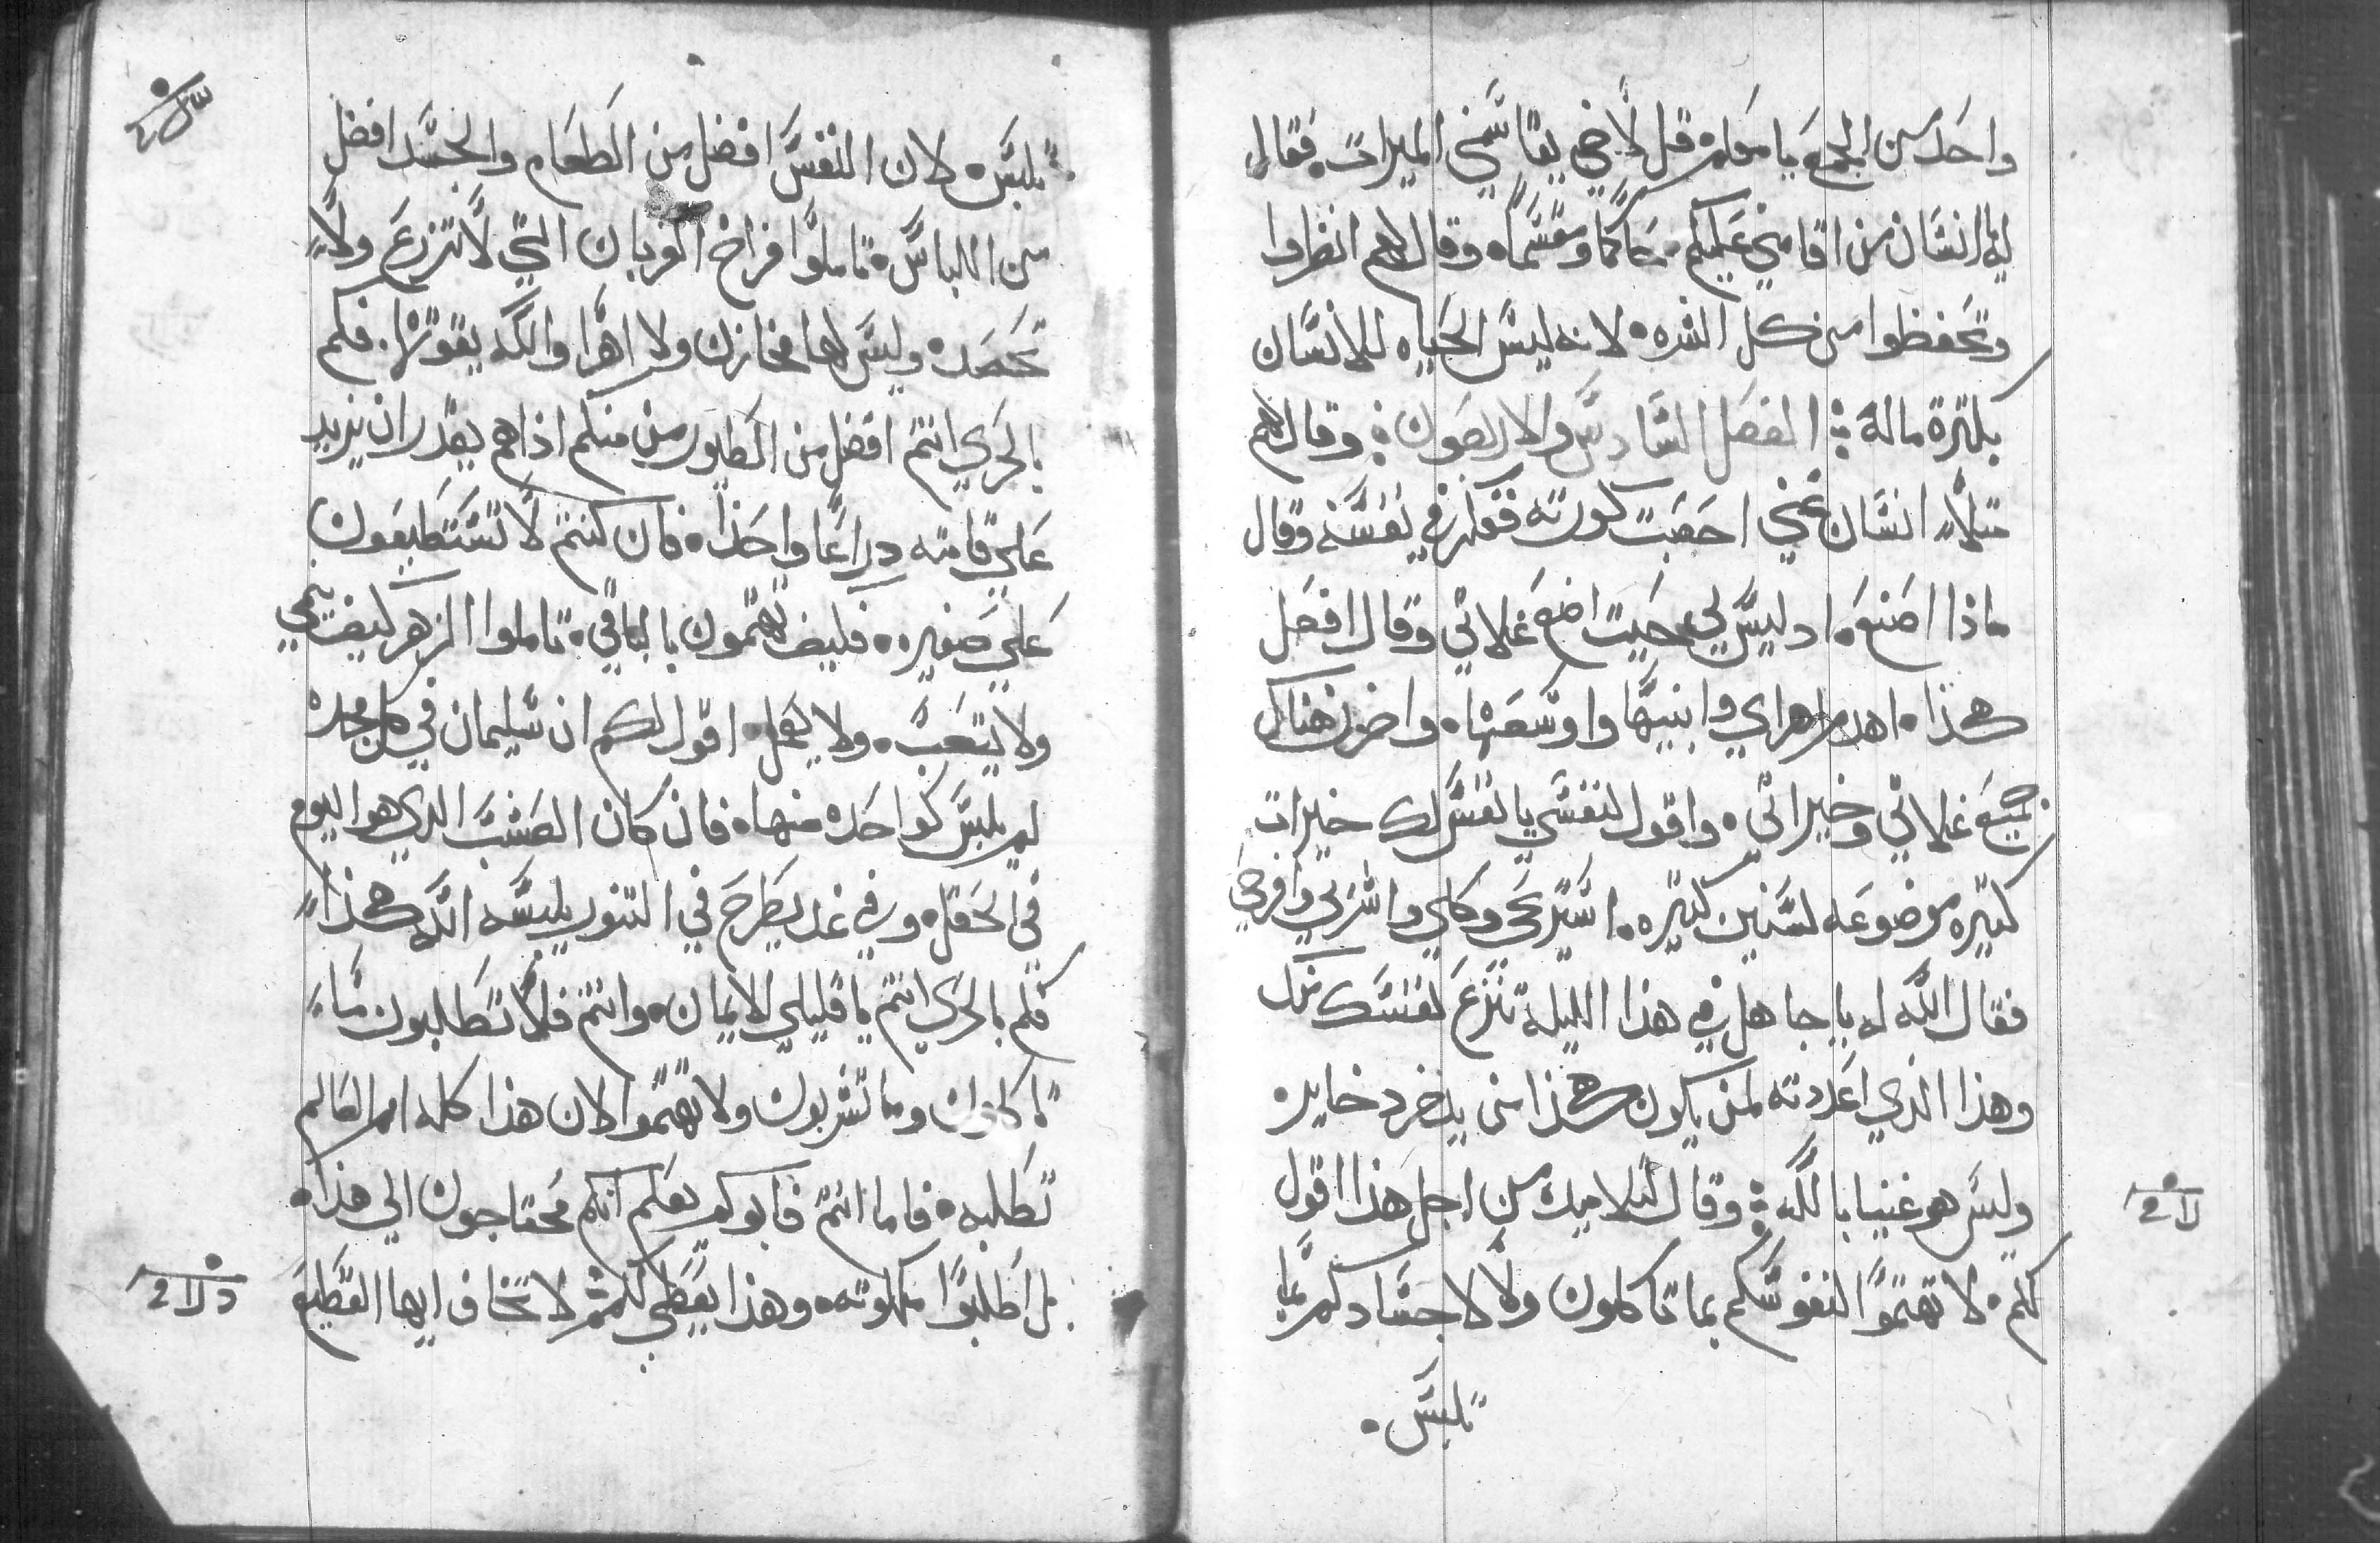 واحد من الجمع يا معلم قل لاخي يقاسمني الميرات فقال
له يا انسان من اقامني عليكم حاكما ومقسما وقال لهم انظروا
وتحفظوا من كل الشره لانه ليس الحياه للانسان
بكترة ماله الفصل السادس والاربعون وقال لهم
متلا انسان غني اخصبت كورته ففكر في نفسه وقال
ماذا اصنع اد ليس لي حيت اضع غلاتي وقال افعل
هكذا اهدم اهراي وابنيها واوسعها واخزن هناك
جميع غلاتي وخيراتي واقول لنفسي يا نفس لك خيرات
كتيره موضوعه لسنين كتيره استريحي وكلي واشربي وافرحي
فقال الله له يا جاهل في هذا الليله تنزع نفسك منك
وهذا الذي اعددته لمن يكون هكذا من يدخر دخايره
وليس هو غنيا بالله وقال لتلاميده من اجل هذا اقول
لكم لا تهتموا لنفوسكم بما تاكلون ولا لاجسادكم بما
تلبس
تلبس لان النفس افضل من الطعام والجسد افضل
من اللباس تاملوا فراخ الغربان التي لا تزرع ولا
تحصد وليس لها مخازن ولا اهرا والله يقوتها فكم
بالحري انتم افضل من الطيور من منكم اذا هم يقدر ان يزيد
علي قامته دراعا واحدا فان كنتم لا تستطيعون
علي صغيره فكيف تهتمون بالباقي تاملوا الزهر كيف ينمي
ولا يتعب ولا يعمل اقول لكم ان سليمان في كل مجده
لم يلبس كواحده منها فان كان العشب الدي هو اليوم
في الحقل وفي غد يطرح في التنور يلبسه الله هكذا
فكم بالحري انتم يا قليلي الايمان وانتم فلا تطلبون ما
تاكلون وما تشربون ولا تهتموا لان هذا كله امم العالم
تطلبه فاما انتم فابوكم يعلم انكم محتاجون الي هذا
بل اطلبوا ملكوته وهذا يعطي لكم لا تخاف ايها القطيع